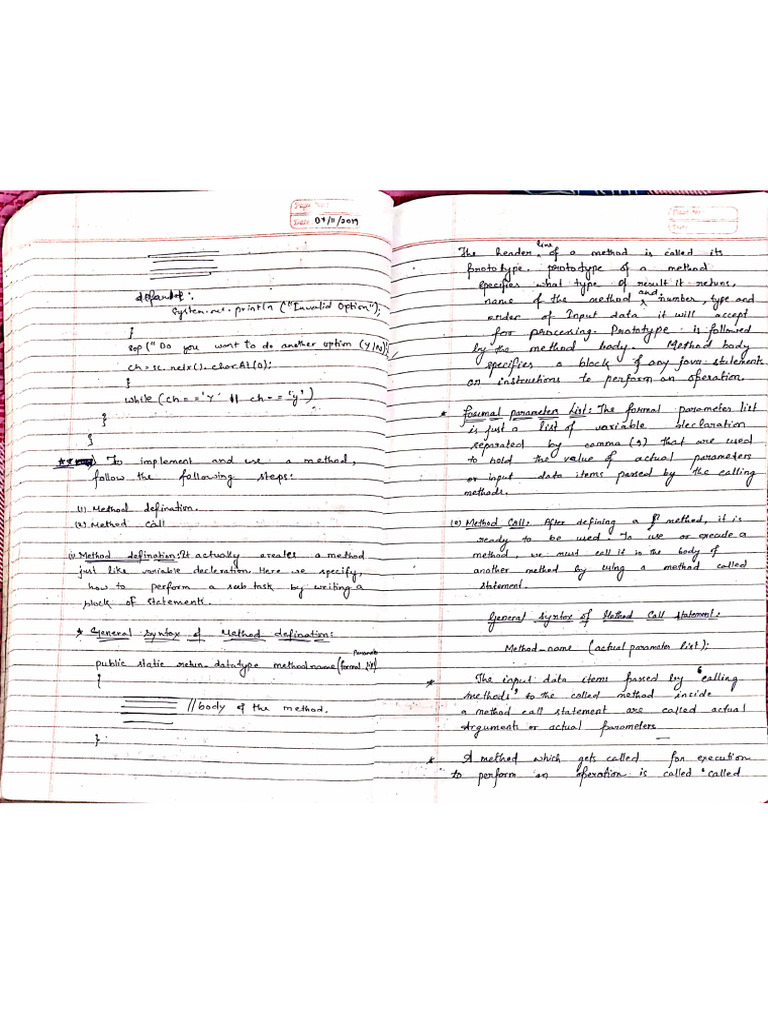 Page No:
Date: 07/11/2019
default:
System.out.println ("Invalid Option");
}
sop("Do you want to do another option (Y/N));
ch = sc.next().charAt(0);
}
while (ch == 'Y' || ch == 'y')
}
}
To implement and use a method,
follow the following steps:
(1) Method defination.
(2) Method call
(1) Method defination: It actually creates a method
just like variable decleration. Here we specify,
how to perform a sub task by writing a
block of statements.
* General Syntax of Method defination:
public static return-datatype methodname (formal Parameter list)
{
//body of the method.
}
Page No:
Date:
The header line of a method is called its
prototype. prototype of a method
specifies what type of result it returns,
name of the method and number, type and
order of Input data it will accept
for processing. Prototype is followed
by the method body. Method body
specifies a block of any java statements
or instructions to perform an operation.
* Formal parameter List: The formal parameter list
is just a list of variable decleration
separated by comma (,) that are used
to hold the value of actual parameters
or input data items passed by the calling
methods.
(2) Method Call: After defining a method, it is
ready to be used. To use or execute a
method, we must call it in the body of
another method by using a method called
statement.
General Syntax of Method Call Statement:
Method_name (actual parameter list);
* The input data items passed by "calling
methods" to the called method inside
a method call statement are called actual
Arguments or actual parameters
* A method which gets called for execution
to perform an operation is called "called